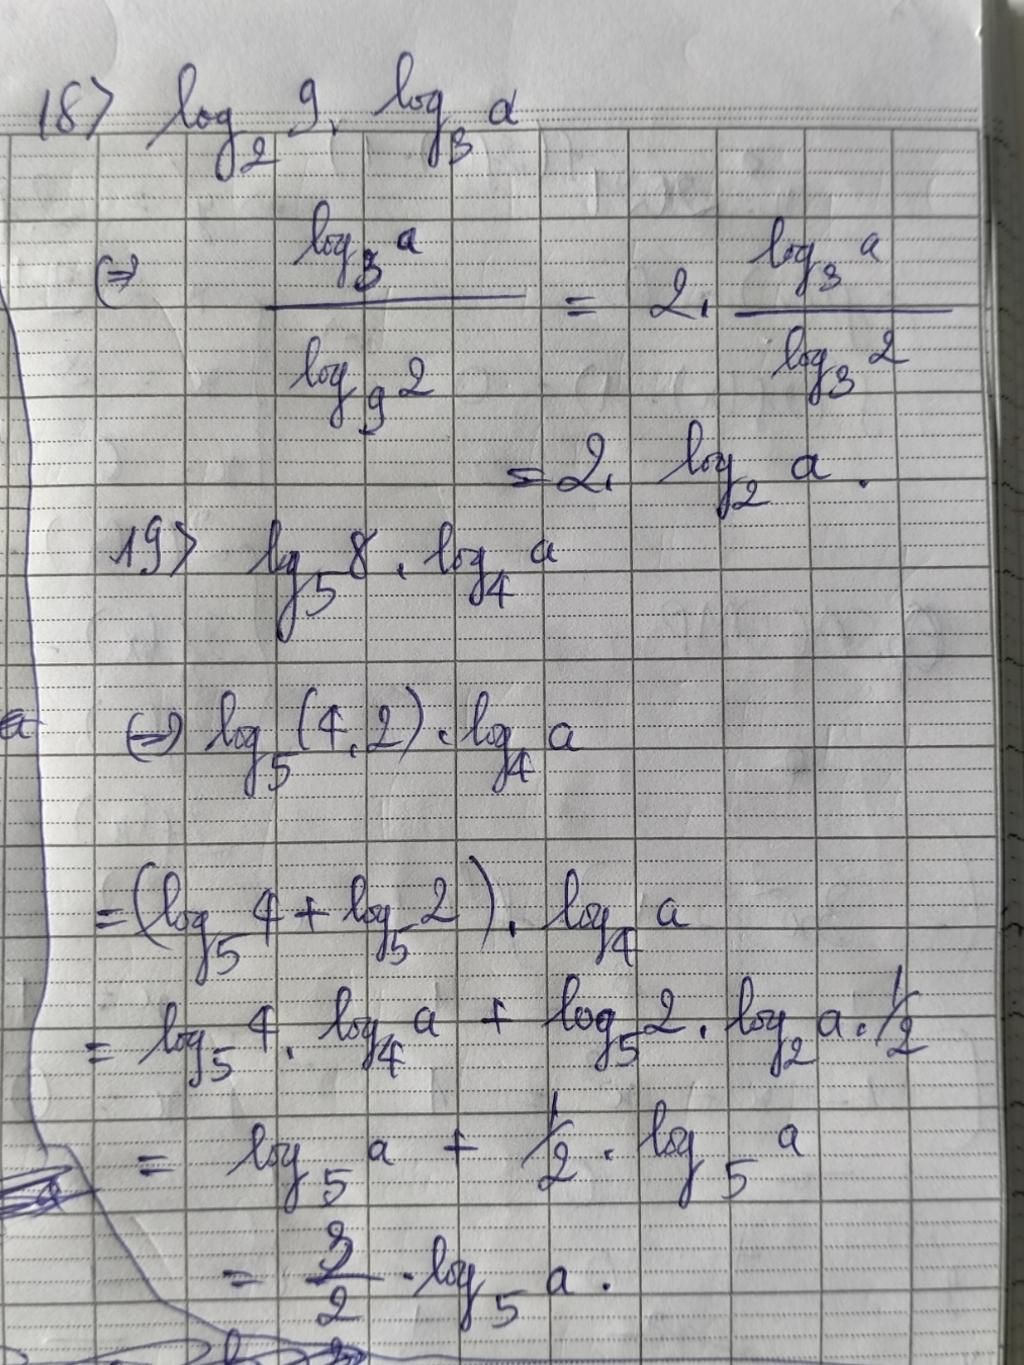 18> log₂ 9 . log₃ a
(⇒ log₃ a / log₉ 2 = 2 . log₃ a / log₃ 2
= 2 . log₂ a .
19> lg₅ 8 . log₄ a
(⇒) log₅ (4.2) . log₄ a
= (log₅ 4 + log₅ 2) . log₄ a
= log₅ 4 . log₄ a + log₅ 2 . log₂ a . 1/2
= log₅ a + 1/2 . log₅ a
= 3/2 . log₅ a .